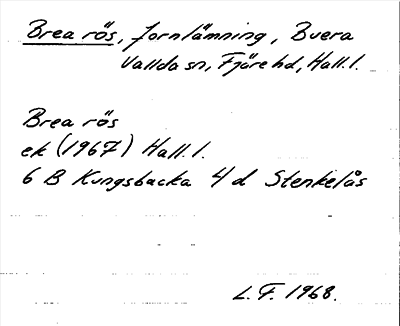 Brea rös, fornlämning, Buera
Vallda sn, Fjäre hd, Hall.l.
Brea rös
ek (1967) Hall.l.
6 B Kungsbacka 4 d Stenkelås
L.F. 1968.